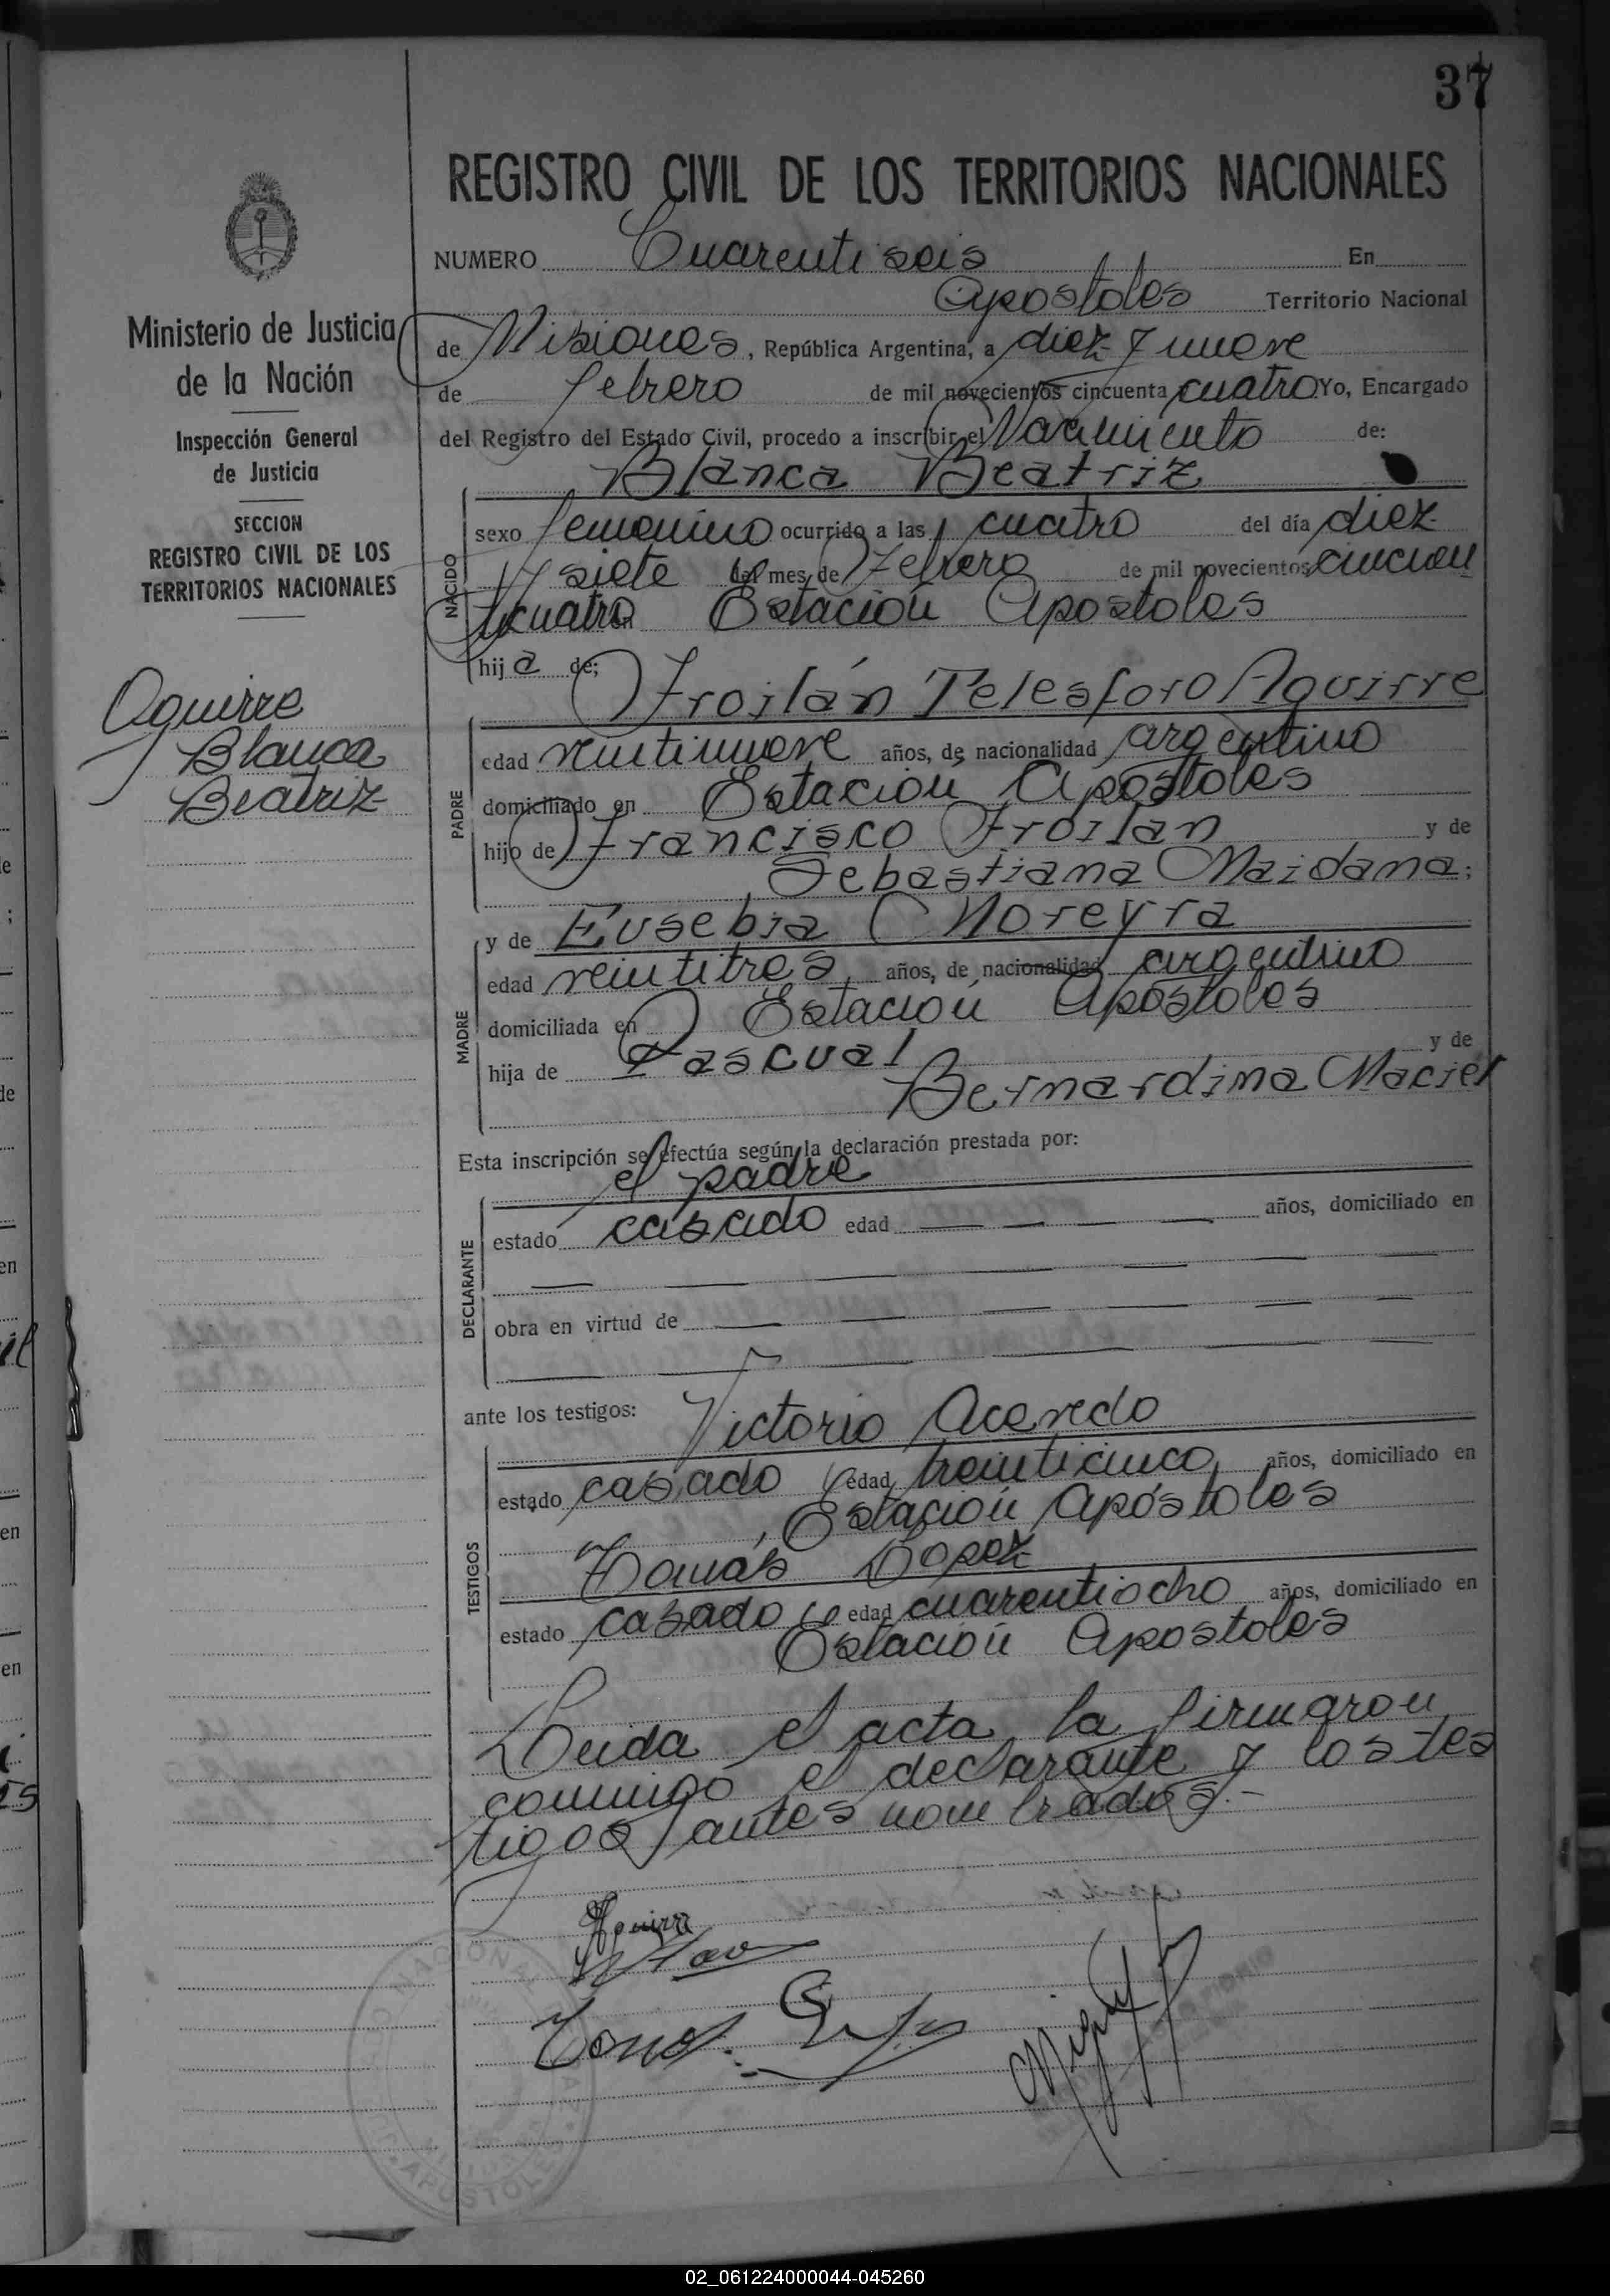 37
REGISTRO CIVIL DE LOS TERRITORIOS NACIONALES
Ministerio de Justicia
de la Nación
Inspección General
de Justicia
SECCION
REGISTRO CIVIL DE LOS
TERRITORIOS NACIONALES
Aguirre
Blanca
Beatriz
NUMERO Cuarentiseis En
Apostoles Territorio Nacional
de Misiones, República Argentina, a diez y nueve
de febrero de mil novecientos cincuenta cuatro Yo, Encargado
del Registro del Estado Civil, procedo a inscribir el Nacimiento de:
Blanca Beatriz
NACIDO
sexo femenino ocurrido a las cuatro del día diez
y siete del mes de Febrero de mil novecientos cincuen
ticuatro en Estación Apostoles
hija de;
Froilán Telesforo Aguirre
PADRE
edad veintinueve años, de nacionalidad argentino
domiciliado en Estacion Apóstoles
hijo de Francisco Froilan y de
Sebastiana Maidana;
y de Eusebia Moreyra
MADRE
edad veintitres años, de nacionalidad argentino
domiciliada en Estación Apóstoles
hija de Pascual y de
Bernardina Maciel
Esta inscripción se efectúa según la declaración prestada por:
el padre
DECLARANTE
estado casado edad años, domiciliado en
obra en virtud de
ante los testigos:
Victorio Acevedo
TESTIGOS
estado casado edad treinticinco años, domiciliado en
Estación Apóstoles
Tomás Lopez
estado casado edad cuarentiocho años, domiciliado en
Estación Apostoles
Leida el acta la firmaron
conmigo el declarante y los tes
tigos antes nombrados.-
Aguirre
02_061224000044-045260